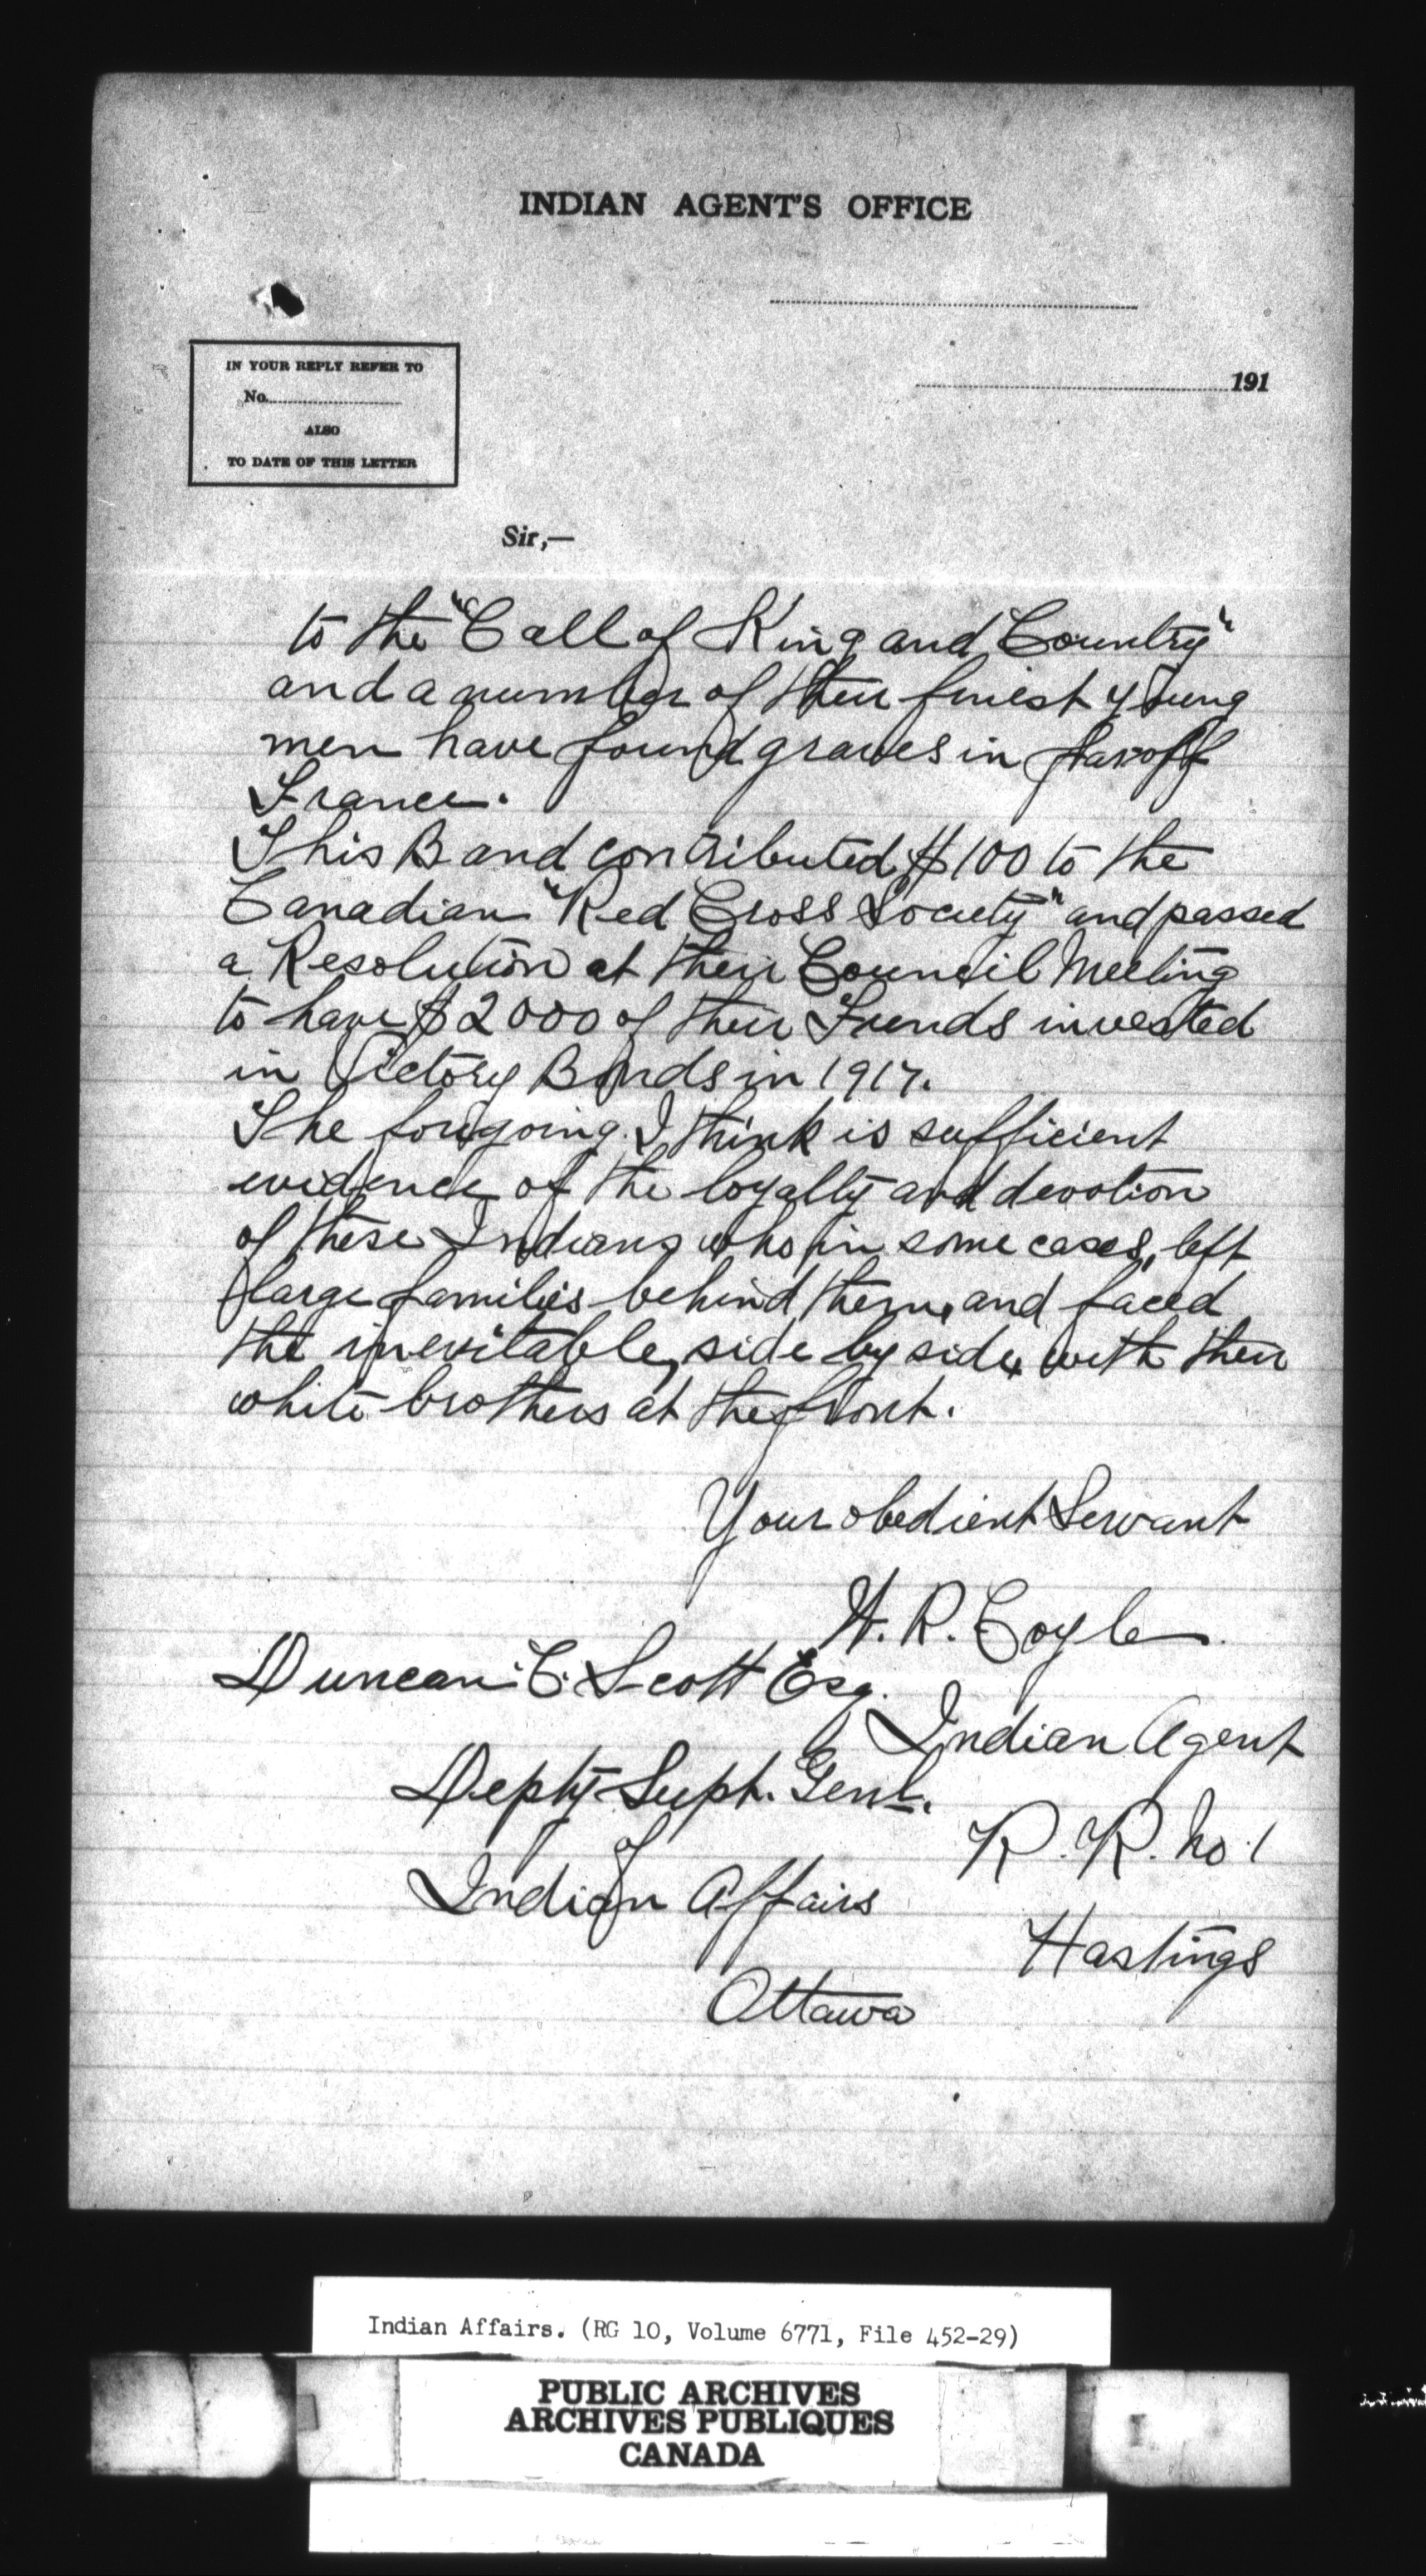 INDIAN AGENT'S OFFICE
191
IN YOUR REPLY REFER TO
No.
ALSO
TO DATE OF THIS LETTER
Sir,—
to the "Call of King and Country"
and a number of their finest young
men have found graves in far off
France.
This Band contributed $100 to the
Canadian "Red Cross Society" and passed
a Resolution at their Council Meeting
to have $2000 of their Funds invested
in Victory Bonds in 1917.
The foregoing I think is sufficient
evidence of the loyalty and devotion
of these Indians who in some cases, left
large families behind them, and faced
the inevitable, side by side with their
white brothers at the front.
Your obedient Servant
W. R. Coyle
Duncan C. Scott Esq.
Indian Agent
Depty Supt. Genl.
R. R. No 1
of
Indian Affairs
Hastings
Ottawa
Indian Affairs. (RG 10, Volume 6771, File 452-29)
PUBLIC ARCHIVES
ARCHIVES PUBLIQUES
CANADA